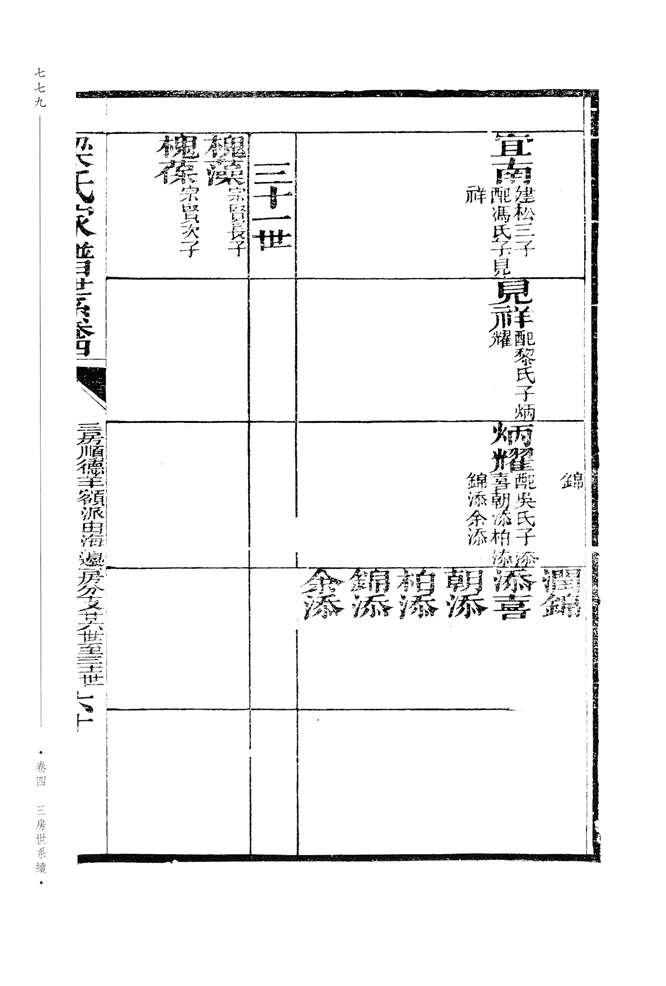 宜南
建松三子
配馮氏子見
祥
見祥
配黎氏子炳
耀
錦
炳耀
配吳氏子添
喜朝添柏添
錦添余添
潤錦
添喜
朝添
柏添
錦添
余添
三十一世
槐藻
宗賢長子
槐葆
宗賢次子
梁氏家譜世系卷四
三房順德羊額派由海邊房分支廿六世至三十一世
六十
七七九
·卷四 三房世系續·